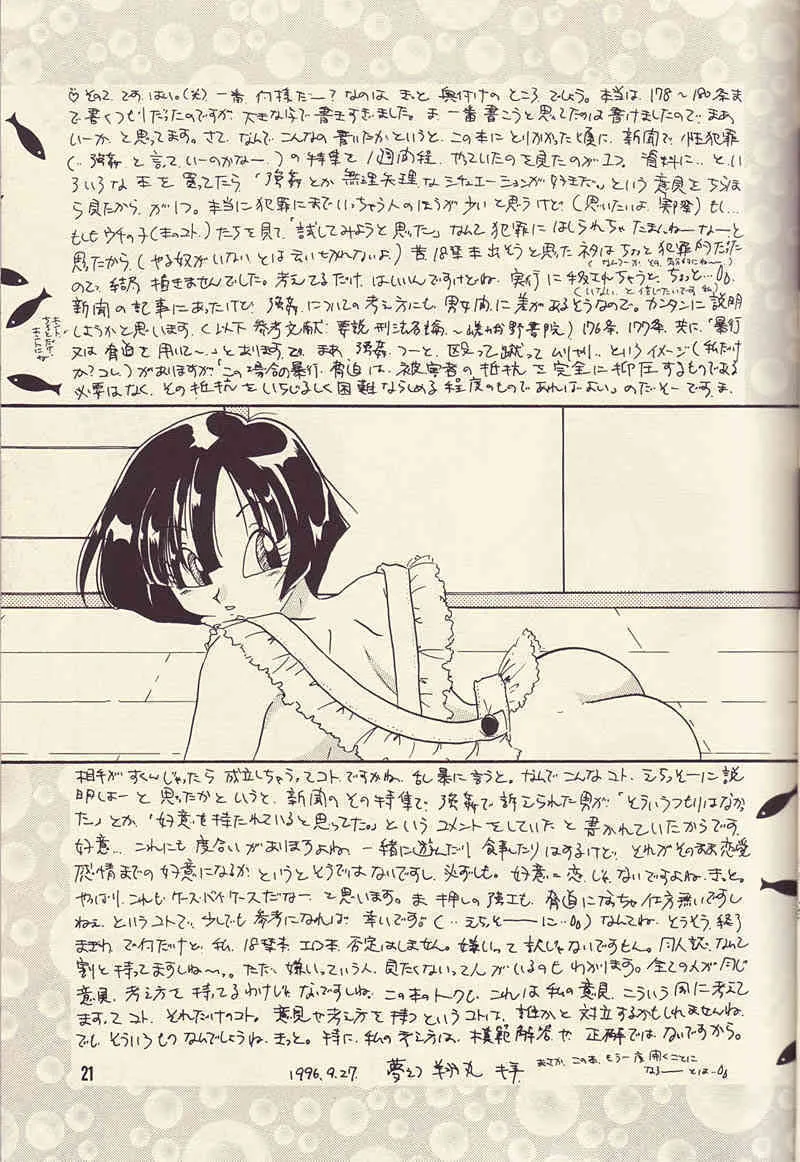 ♡その2.です。はい。(笑) 一番 何様だー?なのは きっと 奥付けの ところ でしょう。本当は、178〜180条ま
で書くつもりだったのですが、大きな字で書きすぎました。ま、一番書こうと思ってたのは書けましたので、まあ
いーか、と思ってます。さて、なんで こんなの書いたかというと、この本にとりかかった頃に、新聞で、性犯罪
(‥強姦 と言って いーのかなー、)の特集を 1週間程、やっていたのを見たのが1つ。資料に‥とい
ろいろな 本を 買ってたら「強姦とか 無理矢理 なシチュエーションが好きだ。」という意見をちらほ
ら見たから、が1つ。本当に犯罪にまでいっちゃう人のほうが少いと思うけど、(思いたいよ、実際)もし‥
もしもウチの子(本のコト、)たちを見て、「試してみようと思った」なんて 犯罪に はしられちゃ たまんねーなーと
思ったから、(やる奴がいない とは 言いきれないよ) 昔、18禁本出そうと思った ネタは ちょっと 犯罪的だった
ので、結局 描きませんでした。考えてるだけ、はいいんですけどね、実行に移されちゃうと、ちょっと…
(いない、と信じたいです 私)
新聞の記事にあったけど、強姦についての考え方にも、男女間に差があるそうなので。カンタンに説明
しようかと思います。(以下 参考文献: 要説 刑法各論 〜嵯峨野書院) 176条、177条、共に、「暴行
又は 脅迫を 用いて〜、」とあります。で、まあ、強姦、つーと、殴って蹴って ムリヤリ‥というイメージ(私だけ
か?コレ)がありますが「この場合の暴行、脅迫は、被害者の 抵抗 を 完全に 抑圧 するものである
必要はなく、その抵抗をいちじるしく 困難ならしめる 程度のもので あればよい」のだ、そーです。ま、
相手がすくんじゃったら 成立しちゃうってコトですかね、乱暴に言うと。なんでこんなコト、えらっそーに説
明しよーと 思ったか というと、新聞の その特集で、強姦で 訴えられた男が、「そういうつもりはなか
った」とか、「好意を持たれていると思ってた。」という コメントをしていた と 書かれていたからです。
好意… これにも 度合いが ありますよね。一緒に遊んだり 食事したり はするけど、それがそのまま恋愛
感情までの 好意になるか というと そうではないですし、必ずしも。好意=恋、じゃ、ないですよね、きっと。
やっぱり、これも ケースバイケースだなー、と思います。ま、押しの強さも、脅迫になっちゃ仕方無いですし
ねえ、というコトで、少しでも 参考になれば 幸いです。(‥えらっそーーに‥) なんてね、とうとう、終了
まぎわ で何だけど、私、18禁本、エロ本、否定はしません。嫌いって 訳じゃないですもん。同人誌、なんて
割と持ってますしね〜。ただ、嫌いっていう人、見たくないって人がいるのも わかります。全ての人が同じ
意見、考え方を 持ってるわけじゃ ないですしね、この本のトークも、これは 私の意見、こういう風に考えて
ますってコト、それだけのコト。意見や考え方を持つ というコトは、誰かと 対立するかもしれませんね、
でも そういうもの なんでしょうね、きっと。特に、私の 考え方は、模範解答 や 正解では、ないですから。
1996.9.27. 夢之 翔丸 拝
まさか、この本、もう一度 開くことに
なる―― とは‥
21